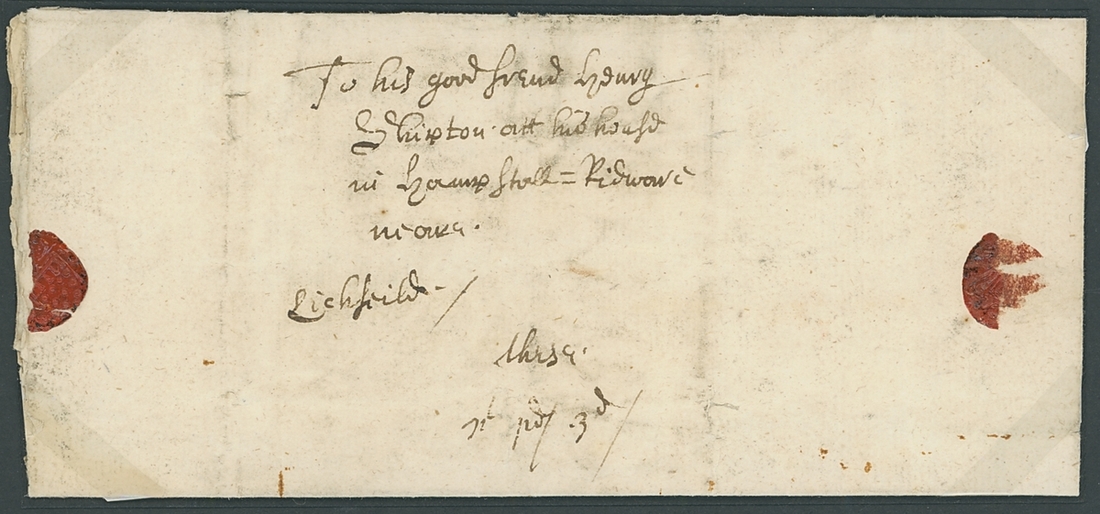 To his good frend Henry
Skipton att his house
in Hampstall=Ridware
neare.
Lichfeild. /
these.
pd 3d /